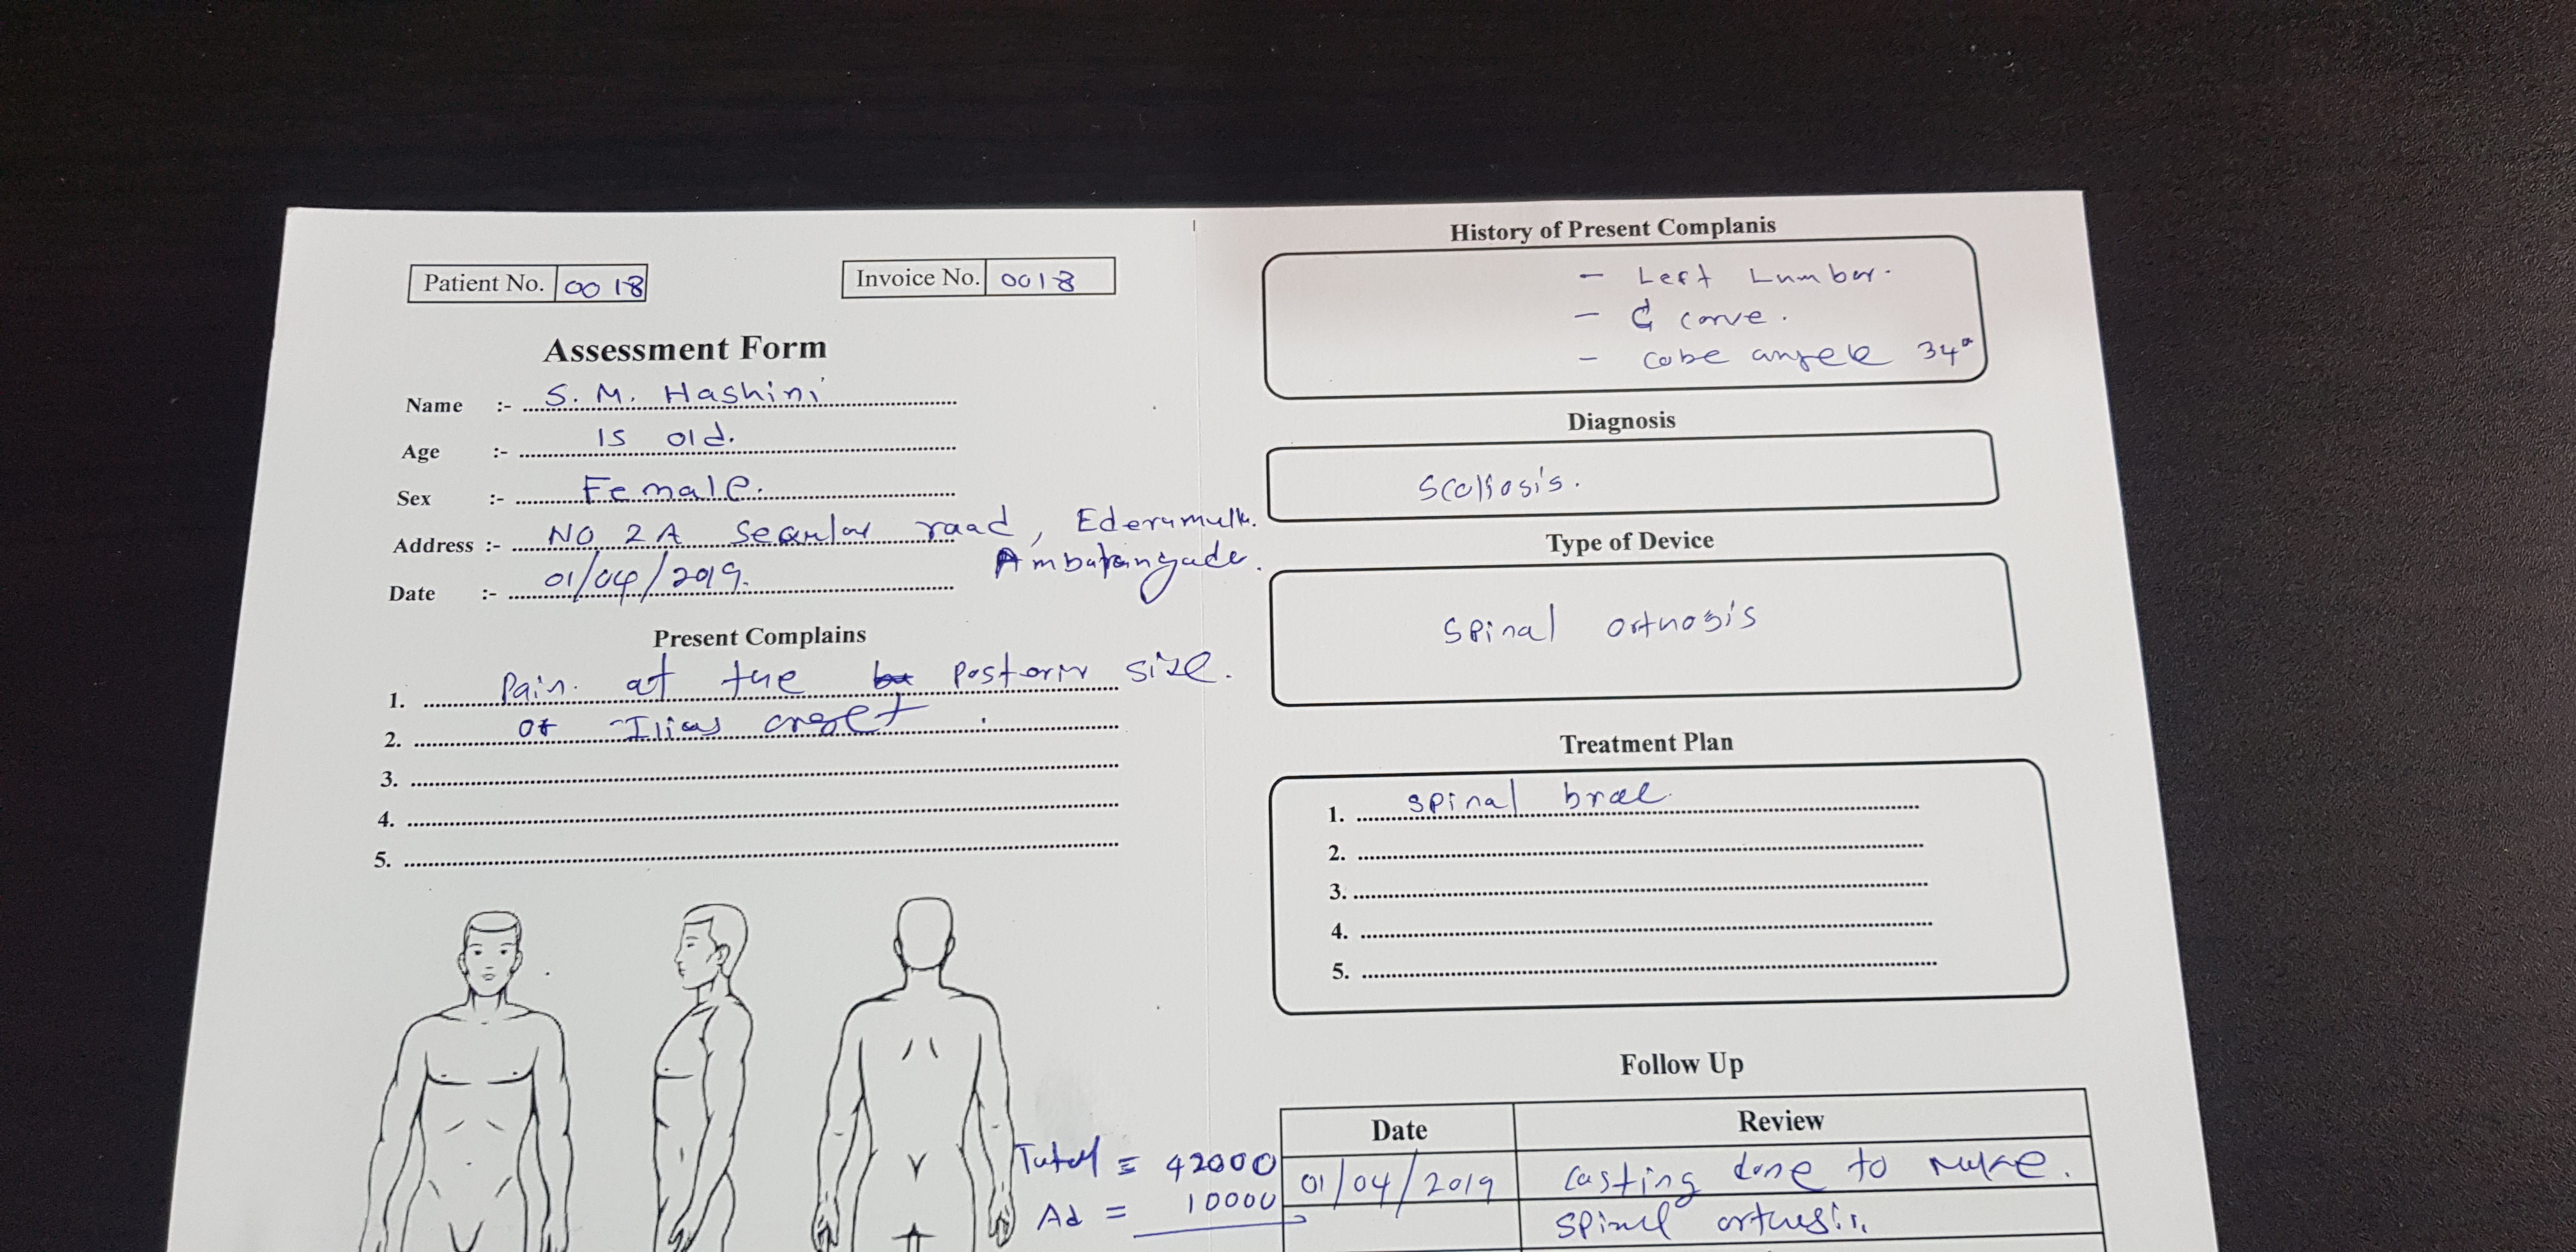 Patient No. 0018
Invoice No. 0018
Assessment Form
Name :- S. M. Hashini
Age :- 15 old.
Sex :- Female.
Address :- NO 2A road,
Date :- 01/04/2019.
Present Complains
1. Pain. at the posterior size.
2. of Ilias crest.
3.
4.
5.
Total = 42000
Ad = 10000
History of Present Complanis
- Left Lumber.
- d curve.
- cobe angele 34°
Diagnosis
Scoliosis.
Type of Device
Spinal orthosis
Treatment Plan
1. spinal brace
2.
3.
4.
5.
Follow Up
Date Review
01/04/2019 casting done to make.
spinal orthosis.